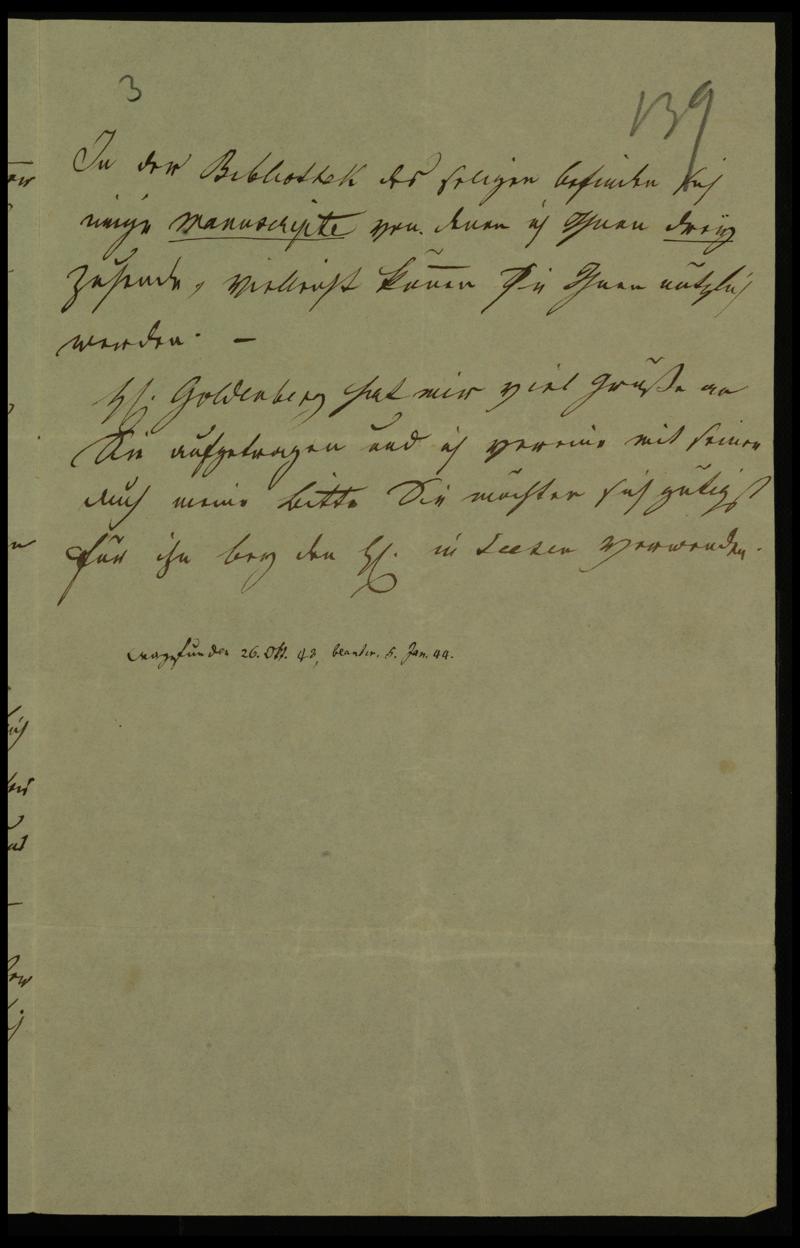 3
139
In der Bibliothek des seligen befinden sich
einige Manuscripte von denen ich Ihnen drey
zusende, vielleicht können Sie Ihnen nützlich
werden. —
H. Goldenberg hat mir viel Grüße an
Sie aufgetragen und ich vereine mit seiner
auch meine bitte Sie möchten sich gütigst
für ihn bey den H. in Seesen verwenden.
26. Okt. 43, beantw. 5. Jan. 44.